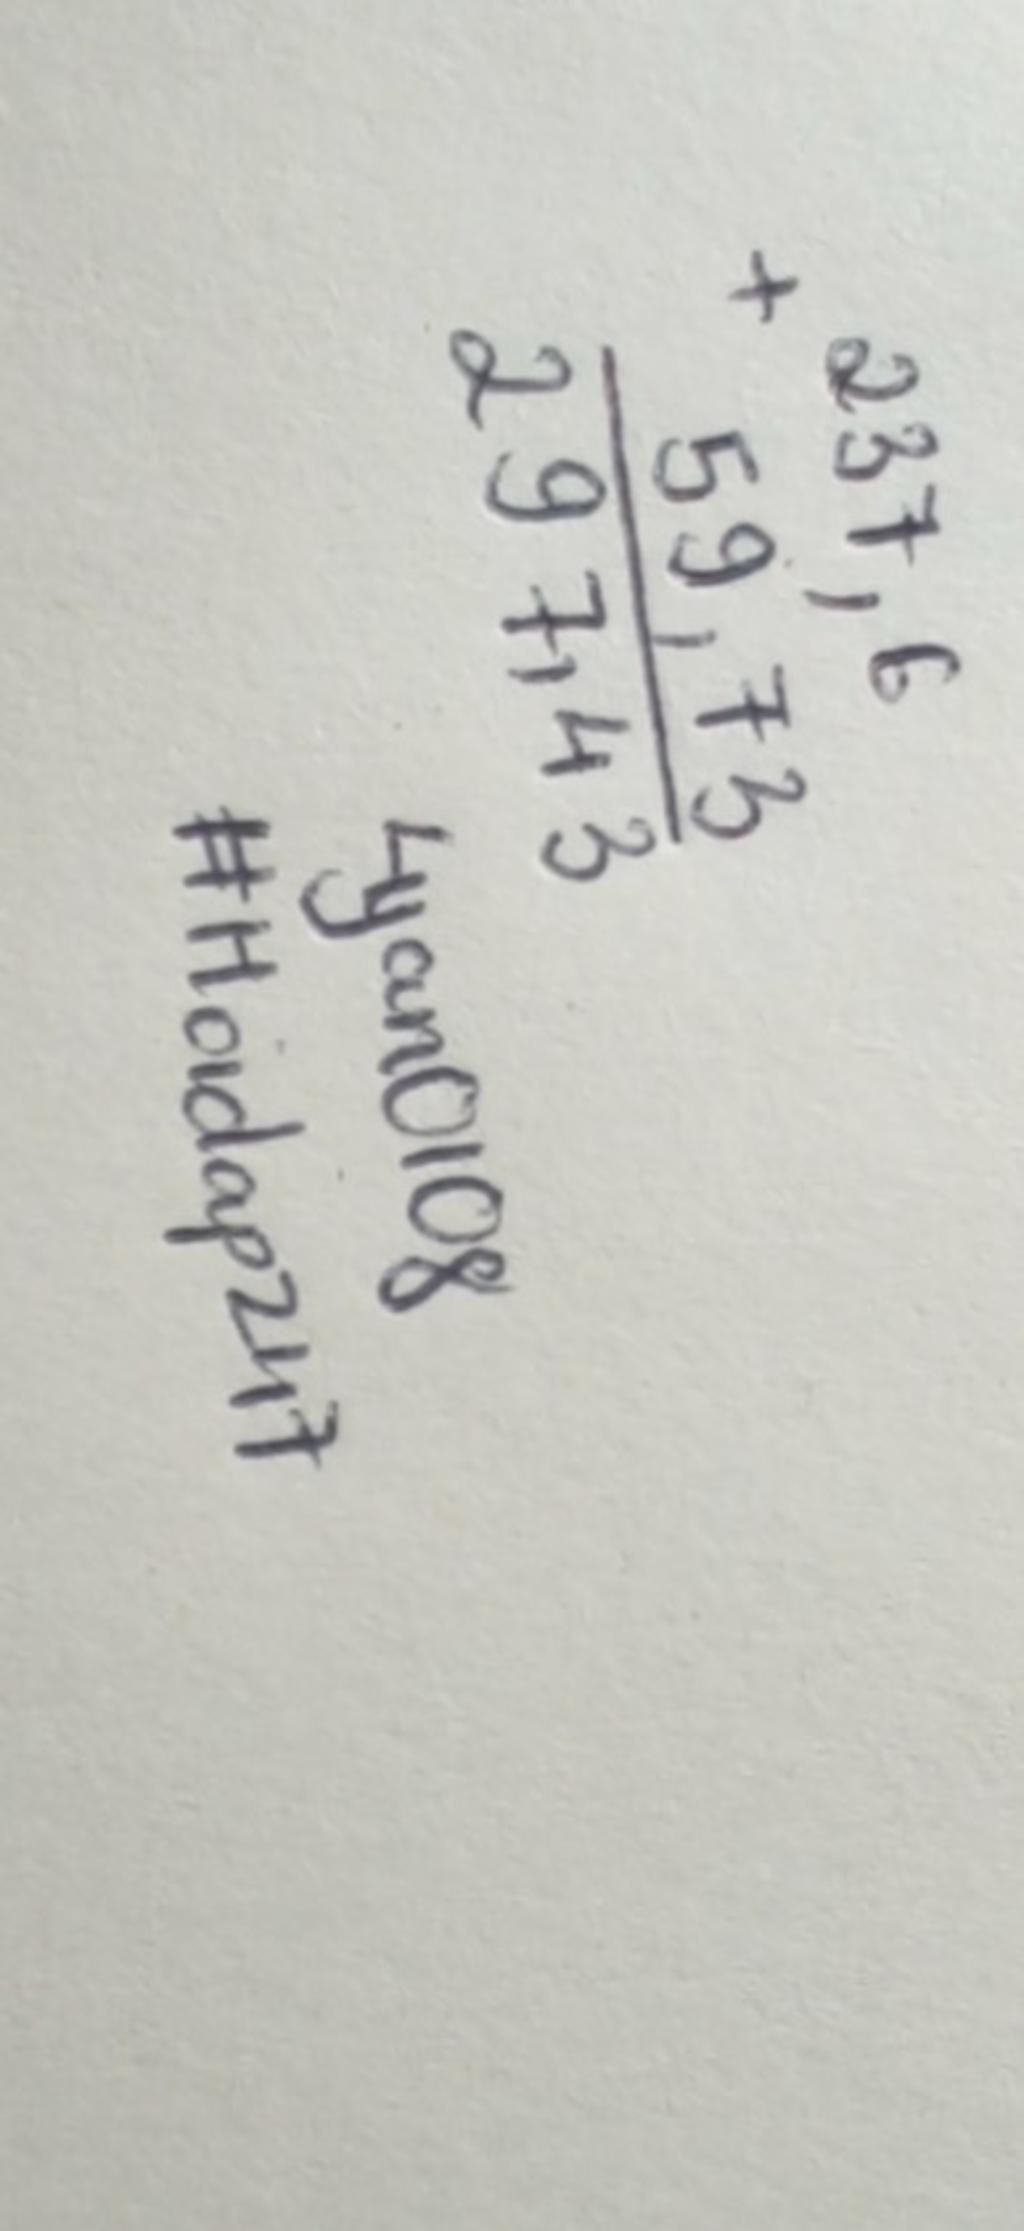 +
237,6
59,73
297,43
Lyan0108
#Hoidap247